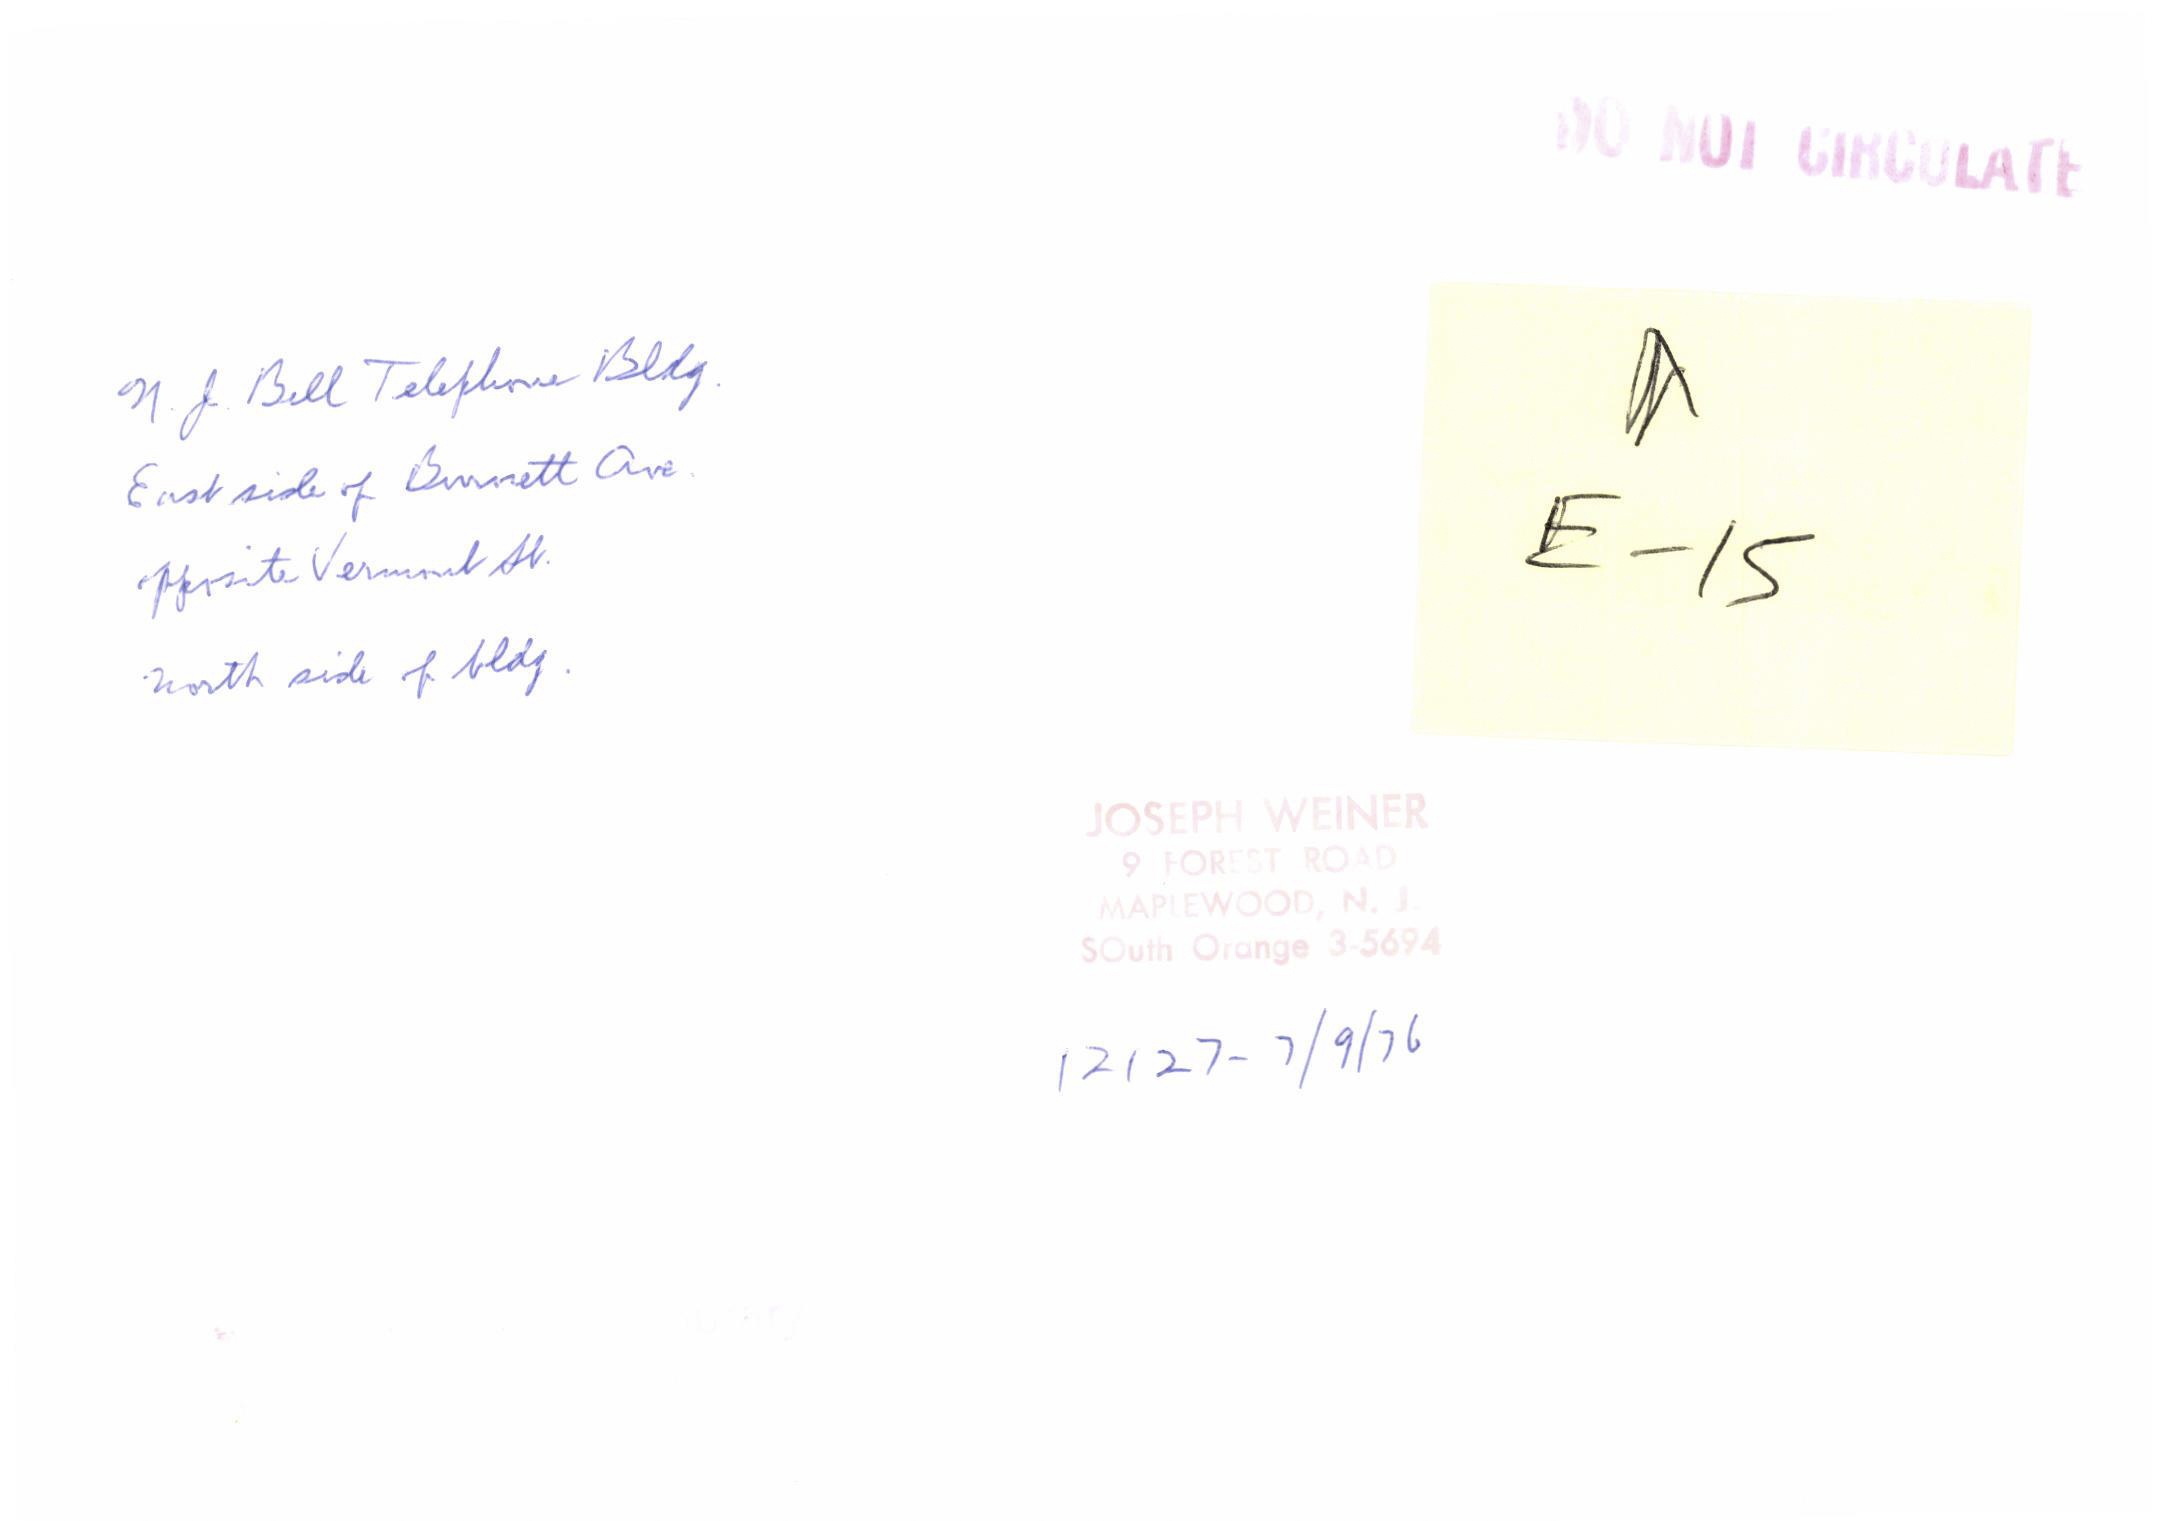 DO NOT CIRCULATE
N. J. Bell Telephone Bldg.
East side of Burnett Ave.
opposite Vermont St.
north side of bldg.
A
E-15
JOSEPH WEINER
9 FOREST ROAD
MAPLEWOOD, N. J.
SOuth Orange 3-5694
12127- 7/9/76